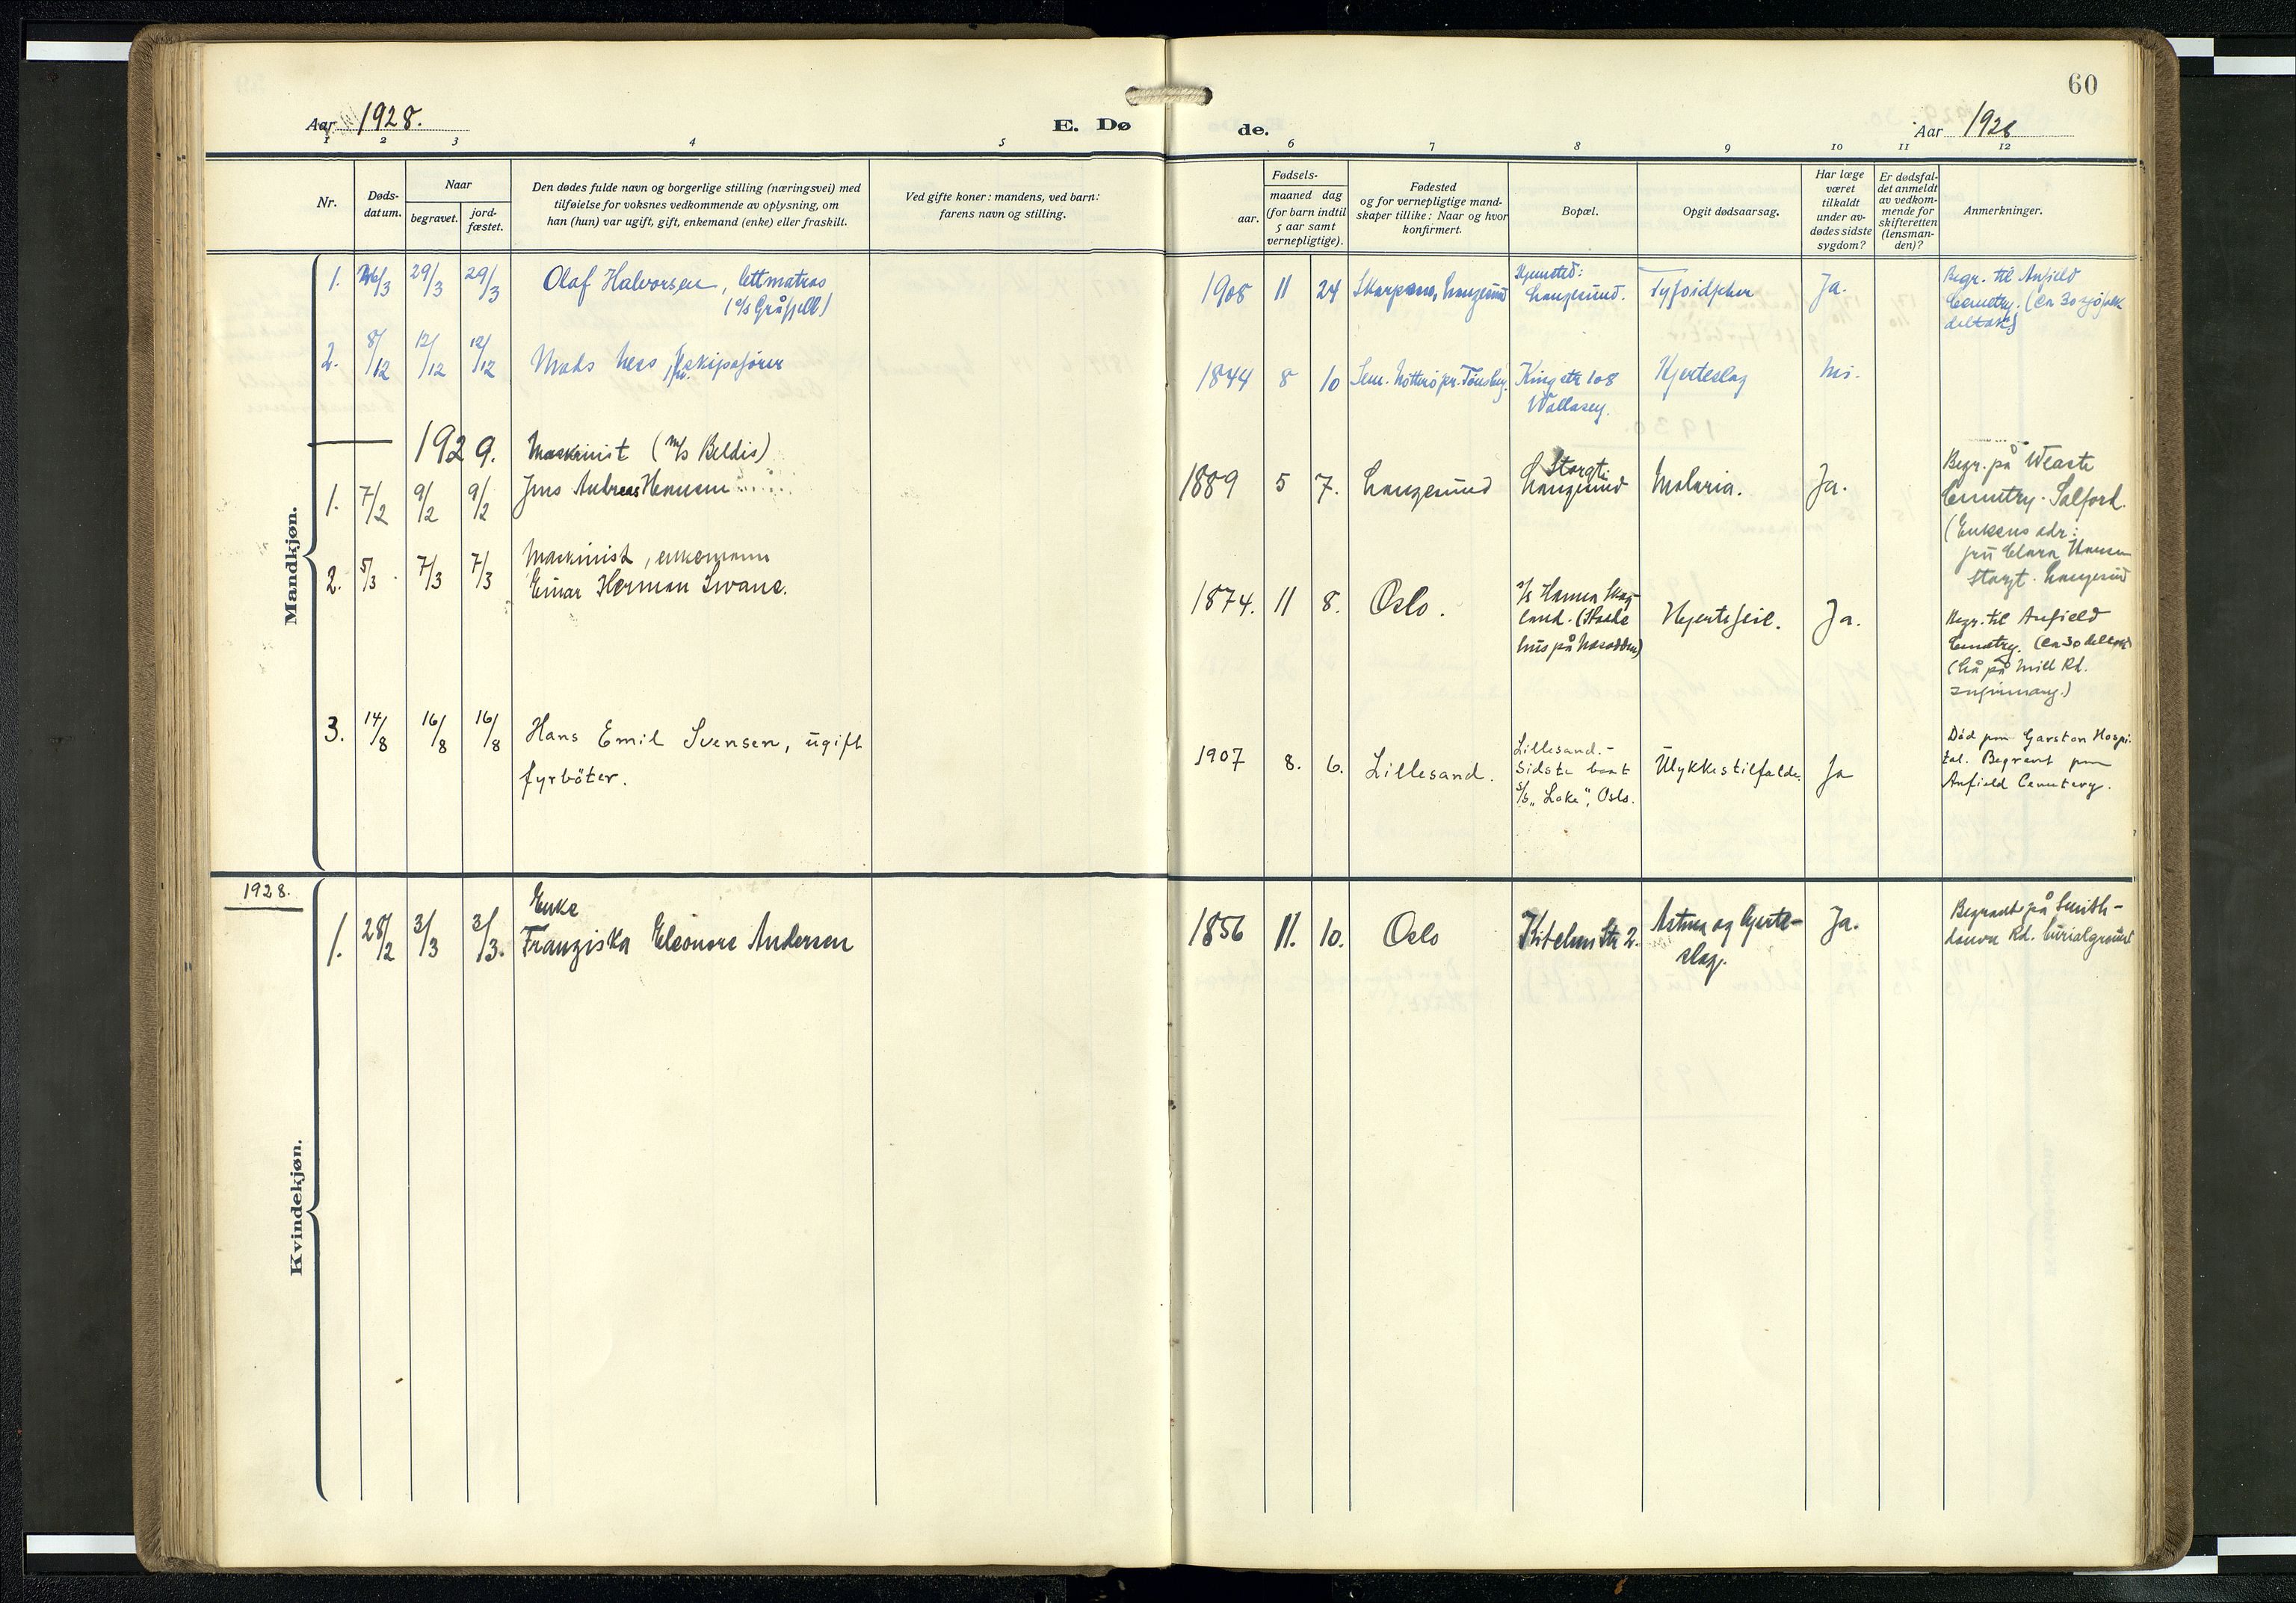 60
Aar 1928.
E. Dø
de.
Aar 1928
1 2 3 4 5 6 7 8 9 10 11 12
Nr.
Døds-
datum.
Naar
begravet.
jord-
fæstet.
Den dødes fulde navn og borgerlige stilling (næringsvei) med
tilføielse for voksnes vedkommende av oplysning, om
han (hun) var ugift, gift, enkemand (enke) eller fraskilt.
Ved gifte koner: mandens, ved barn:
farens navn og stilling.
Fødsels-
aar.
maaned dag
(for barn indtil
5 aar samt
vernepligtige).
Fødested
og for vernepligtige mand-
skaper tillike: Naar og hvor
konfirmert.
Bopæl.
Opgit dødsaarsag.
Har læge
været
tilkaldt
under av-
dødes sidste
sygdom?
Er dødsfal-
det anmeldt
av vedkom-
mende for
skifteretten
(lensman-
den)?
Anmerkninger.
Mandkjøn.
1. 26/3 29/3 29/3 Olaf Halvorsen, lettmatros
(s/s Gråfjell)
1908 11 24 Langesund
Hjemsted:
Langesund.
Ja.
Begr. til Anfield
Cemetry. (Ca 30 sjøfolk
deltok)
2. 8/12 12/12 12/12 Mads Lees, skipsfører
1844 8 10 Sem. Nötterö pr. Tönsberg.
King str 108
Wallasey.
Hjerteslag
Nei.
1929.
Maskinist (m/s Beldis)
1. 7/2 9/2 9/2 Jens Andreas Hansen
1889 5 7. Langesund
Storgt.
Langesund
Malaria.
Ja.
Begr. på Weaste
Cemetry. Salford.
(Enkens adr:
fru Clara Hansen
Storgt. Langesund
Maskinist, enkemann
2. 5/3 7/3 7/3 Einar Herman Swane.
1874. 11 8. Oslo.
s/s Hanna Skog-
land.
hus på Nesodden)
Hjertefeil.
Ja.
Begr. til Anfield
Cemetry. (Ca 30 deltok)
(Lå på Mill Rd.
Infirmary.)
3. 14/8 16/8 16/8 Hans Emil Svensen, ugift
fyrböter.
1907 8. 6. Lillesand.
Lillesand.-
Sidste baat
s/s „Loke", Oslo.
Ulykkestilfælde.
Ja
Död paa Garston Hospi-
tal. Begravet paa
Anfield Cemetery.
1928.
Kvindekjøn.
Enke
1. 28/2 3/3 3/3. Franziska Eleonore Andersen
1856 11. 10. Oslo
Kitchen Str 2.
Astma og hjerte-
slag.
Ja.
Begravet på Smith-
down Rd. burialground